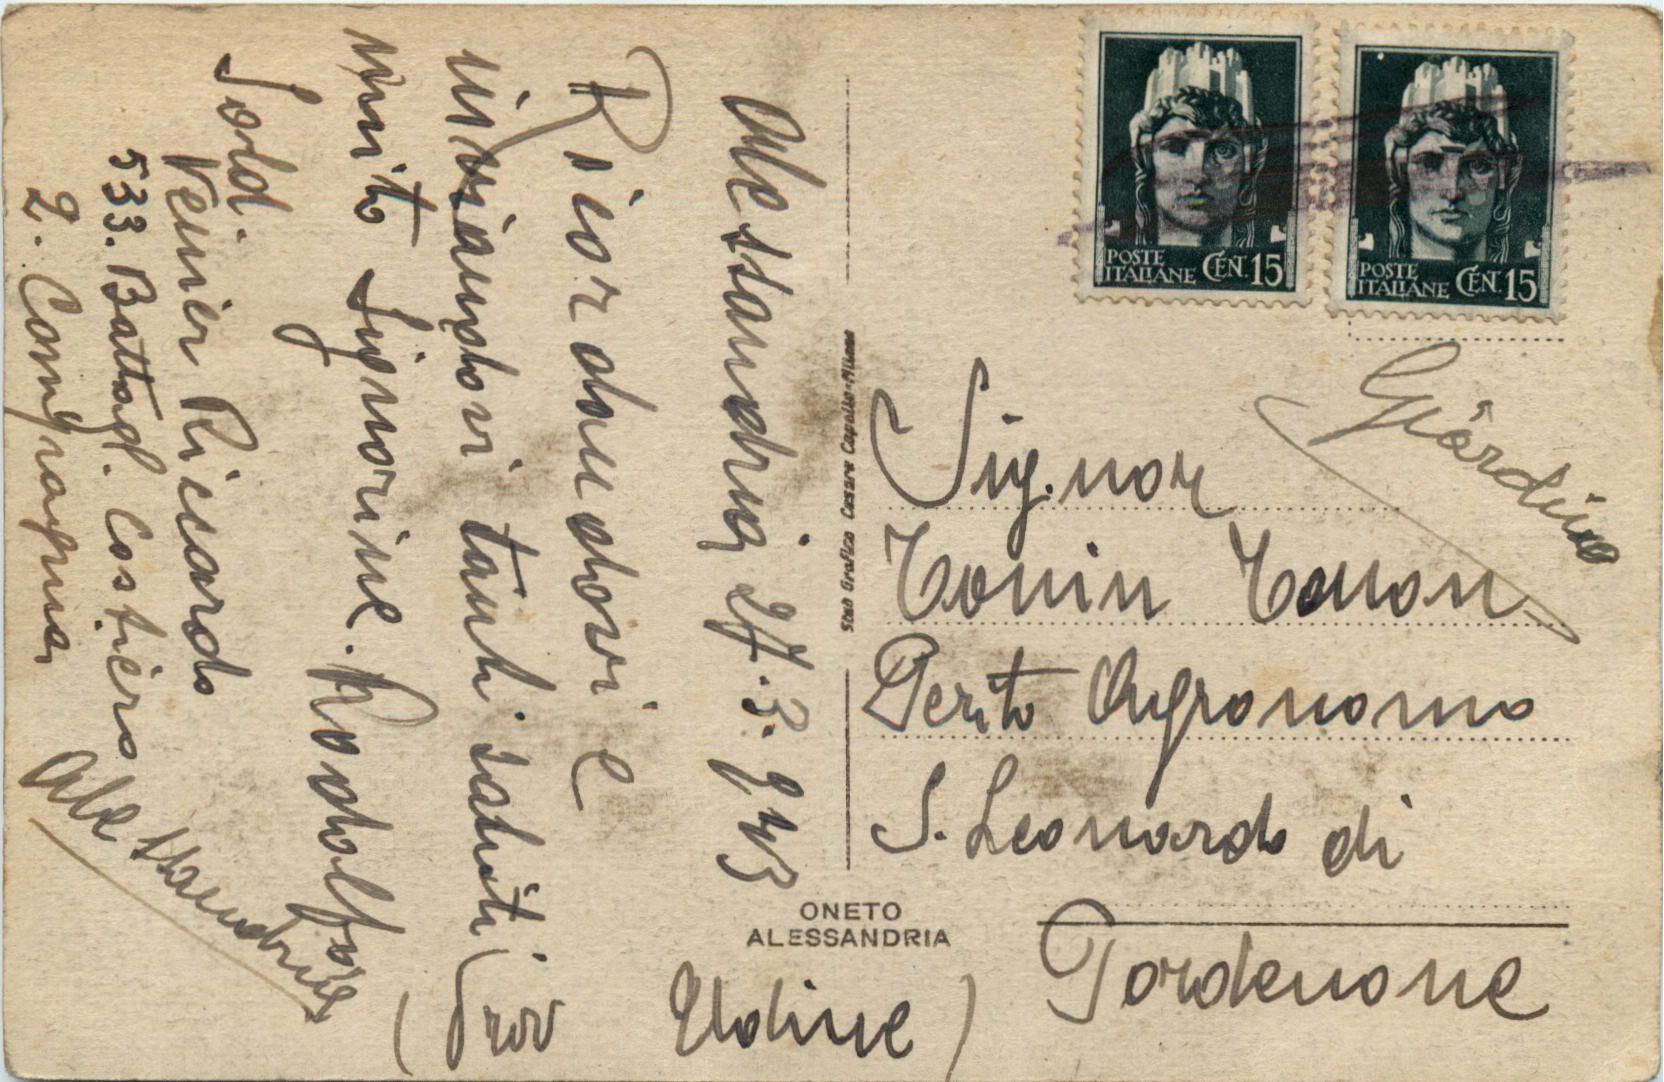 Alessandria 27.3.943
Ricordandovi e
inviandovi tanti saluti
unito Signorine. Rodolfore
Sold. Venier Riccardo
533. Battagl. Costiero
2. Compagnia
Alessandria
POSTE
ITALIANE CEN. 15
POSTE
ITALIANE CEN. 15
Giordino
Sig.nor
Tonin
Perito Agronomo
S. Leonardo di
Pordenone
(Prov Udine)
Stab Grafico Cesare Capello-Milano
ONETO
ALESSANDRIA